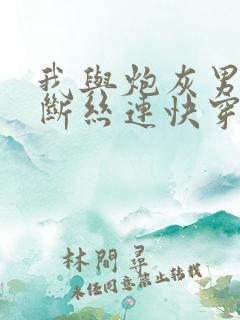 我與炮灰男
斷絲連快穿
林間尋
未经同意禁止转载